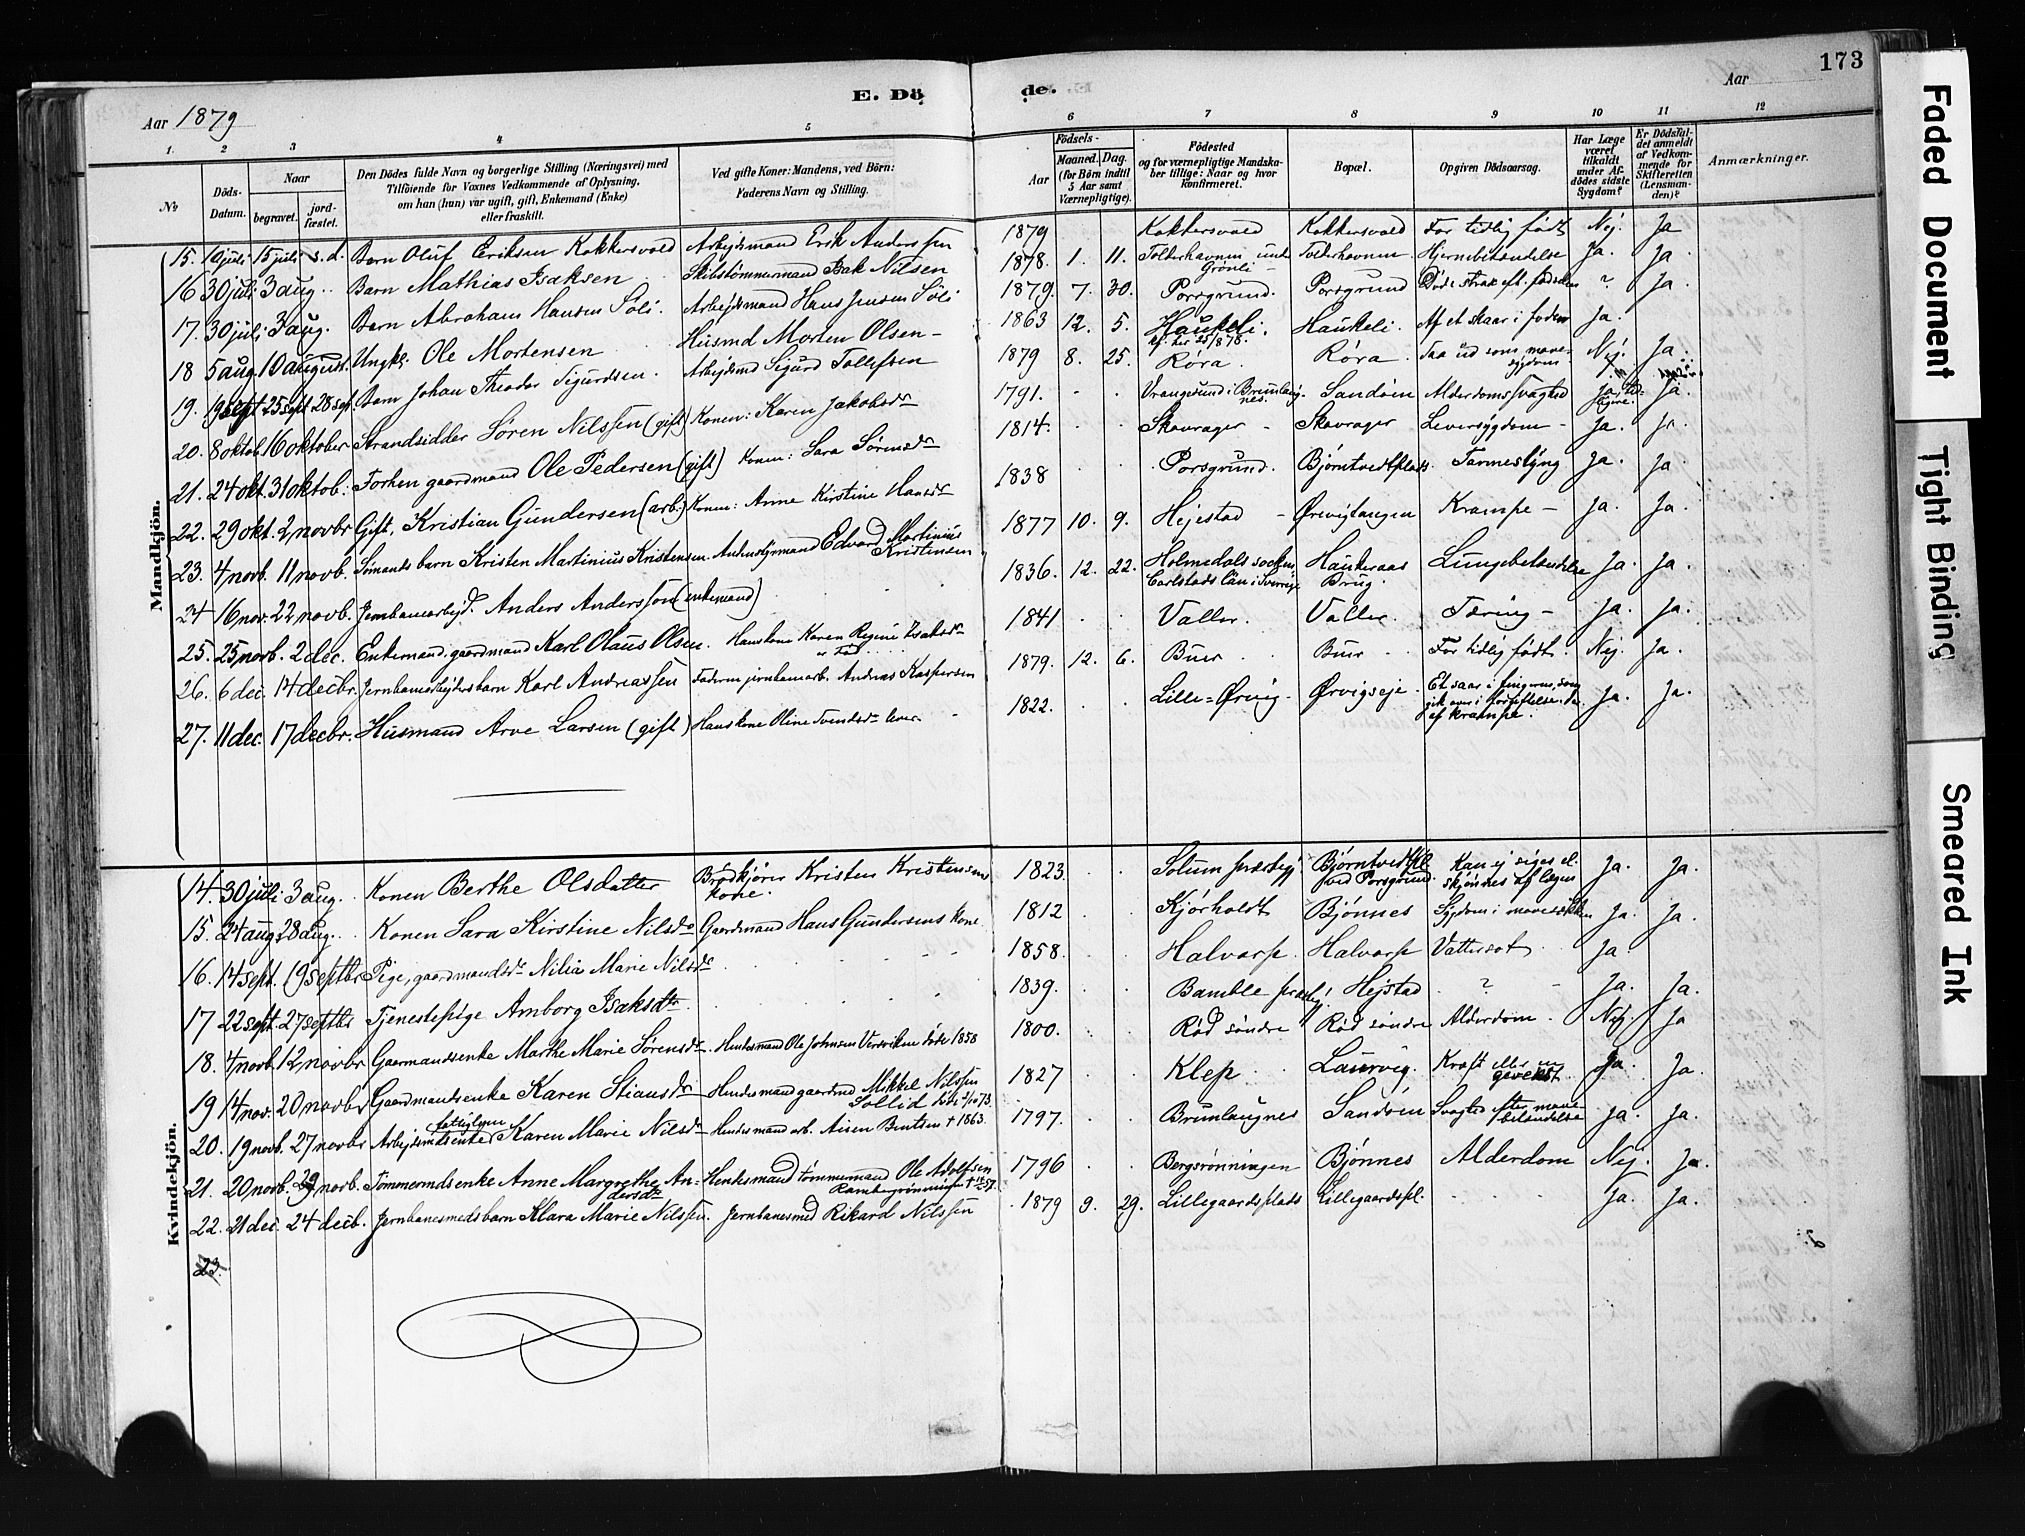 173
E. Dö de.
Aar 1879
Aar
1. 2 3 4 5 6 7 8 9 10 11 12
No
Döds-Datum.
Naar
begravet.
jordfæstet.
Den Dödes fulde Navn og borgerlige Stilling (Næringsvei) med Tilföiende for Voxnes Vedkommende af Oplysning, om han (hun) var ugift, gift, Enkemand (Enke) eller fraskilt.
Ved gifte Koner: Mandens, ved Börn: Faderens Navn og Stilling.
Födsels-
Aar
Maaned. Dag. (for Börn indtil 5 Aar samt Værnepligtige).
Födested og for værnepligtige Mandskaber tillige: Naar og hvor konfirmeret.
Bopæl.
Opgiven Dödsaarsag.
Har Læge været tilkaldt under Afdödes sidste Sygdom?
Er Dödsfaldet anmeldt af Vedkommende for Skifteretten (Lensmanden)?
Anmærkninger.
Mandkjön.
15. 10 juli 15 juli s. d. Barn Oluf Eriksen Kokkersvold Arbejdsmand Erik Anderssen 1879 Kokkersvold Kokkersvold For tidlig født Nej. Ja
16 30 juli 3 aug. Barn Mathias Isaksen Skibstømmermand Isak Nilsen 1878. 1. 11. Tolderhavnen under Grønli Tolderhavnen Hjernebetændelse Ja. Ja.
17. 30 juli 3 aug. Barn Abraham Hansen Söli. Arbejdsmand Hans Jensen Söli 1879. 7. 30. Porsgrund. Porsgrund Døde strax eft. fødselen ? Ja.
18 5 aug. 10 august. Ungk. Ole Mortensen Husmd Morten Olsen 1863 12. 5. Haukeli. Haukeli. Af et skaar i foden Ja.
19. 19 sept 25 sept 28 sept. Barn Johan Theodor Sigurdsen. Arbejdsmd Sigurd Tollefsen 1879 8. 25. Røra Røra Nej. Ja.
20. 8 oktob. 16 oktober Strandsidder Sören Nilssen (gift) Konen: Karen Jakobsdr 1791. Vrangesund i Brunlangnes. Sandöen Alderdomssvaghed Ja.
21. 24 okt. 31 oktob. Forhen gaardmand Ole Pedersen (gift) Konen: Sara Sörensdr 1814. Skavrager Skavrager Leversygdom Ja. Ja.
22. 29 okt. 2 novbr Gift, Kristian Gundersen (arb.) Konen: Anne Kirstine Hansdr 1838 Porsgrund. Bjørntvedtplads Ja. Ja
23. 4 novb. 11 novb. Sömands barn Kristen Martinius Kristensen. Edvard Martinius Kristensen 1877 10. 9. Hejestad Ørvigtangen Krampe Ja. Ja.
24 16 nov. 22 novb. Jernbanearbejd. Anders Anderssen (enkemand) 1836. 12. 22. Holmedals socken Carlstads län i Sverrige Haukeraas Brug. Lungebetændelse Ja. Ja.
25. 25 novb. 2 dec. Enkemand, gaardmand Karl Olaus Olsen. Hans kone Karen Regine Isaksdr 1841 Valler. Valler. Tæring Ja. Ja.
26. 6 dec 14 decbr. Jernbanearbejders barn Karl Andreassen Faderen jernbanearb. Andreas Kaspersen 1879. 12. 6. Buer Buer For tidlig født. Nej. Ja.
27. 11 dec. 17 decbr. Husmand Arve Larsen (gift) Hans kone Oline Svendsdr lever. 1822. Lille-Ørvig. Ørvigseje. Et saar i fingeren, som gik over i forgiftelse, af krampe. Ja. Ja.
Kvindekjön.
14. 30 juli 3 aug. Konen Berthe Olsdatter Brødkjører Kristen Kristensens kone. 1823. Solum præstegj Bjørntvedtpl. ved Porsgrund. Kan ej siges el. skjønnes af lægen Ja. Ja.
15. 24 aug. 28 aug. Konen Sara Kirstine Nilsdr Gaardmand Hans Gundersens kone 1812 Kjorholdt Bjønnes Sygdom i mavesækken Ja. Ja.
16. 14 sept. 19 septbr Pige, gaardmandsdr Nilia Marie Nilsdr 1858. Halvarp. Halvarp Vattersot Ja.
17 22 sept. 27 septbr Tjenestepige Amborg Isaksdtr 1839. Bamble præstegj. Hejstad ? Ja. Ja.
18. 4 novb. 12 novbr Gaarmandsenke Marthe Marie Sörensdr Hendes mand Ole Johnsen Versviken døde 1858 1800. Rød søndre Rød søndre Alderdom. Nej. Ja
19 14 nov. 20 novbr Gaardmandsenke Karen Stiansdr Hendes mand gaardmd Mikkel Nilssen Sollid 1827 Klep Laurvig. Kræft eller en gevekst Ja. Ja.
20. 19 novb. 27 novbr Arbejdsmdsenke fattiglem Karen Marie Nilsdr Hendes mand arb. Aisen Bentsen † 1863. 1797. Brunlaugnes Sandöen Svaghed efter mavebetændelse Ja. Ja.
21. 20 novb. 29 novb. Tömmermdsenke Anne Margrethe Andersdtr Hendes mand tømmermand Ole Adolfsen 1796 Bergsrønningen Bjønnes Alderdom Nej. Ja.
22. 21 dec. 24 decb. Jernbanesmedsbarn Klara Marie Nilssen. Jernbanesmed Rikard Nilssen 1879 9. 29. Lillegaardsplads Lillegaardspl. Ja. Ja.
23.
Faded Document
Tight Binding
Smeared Ink